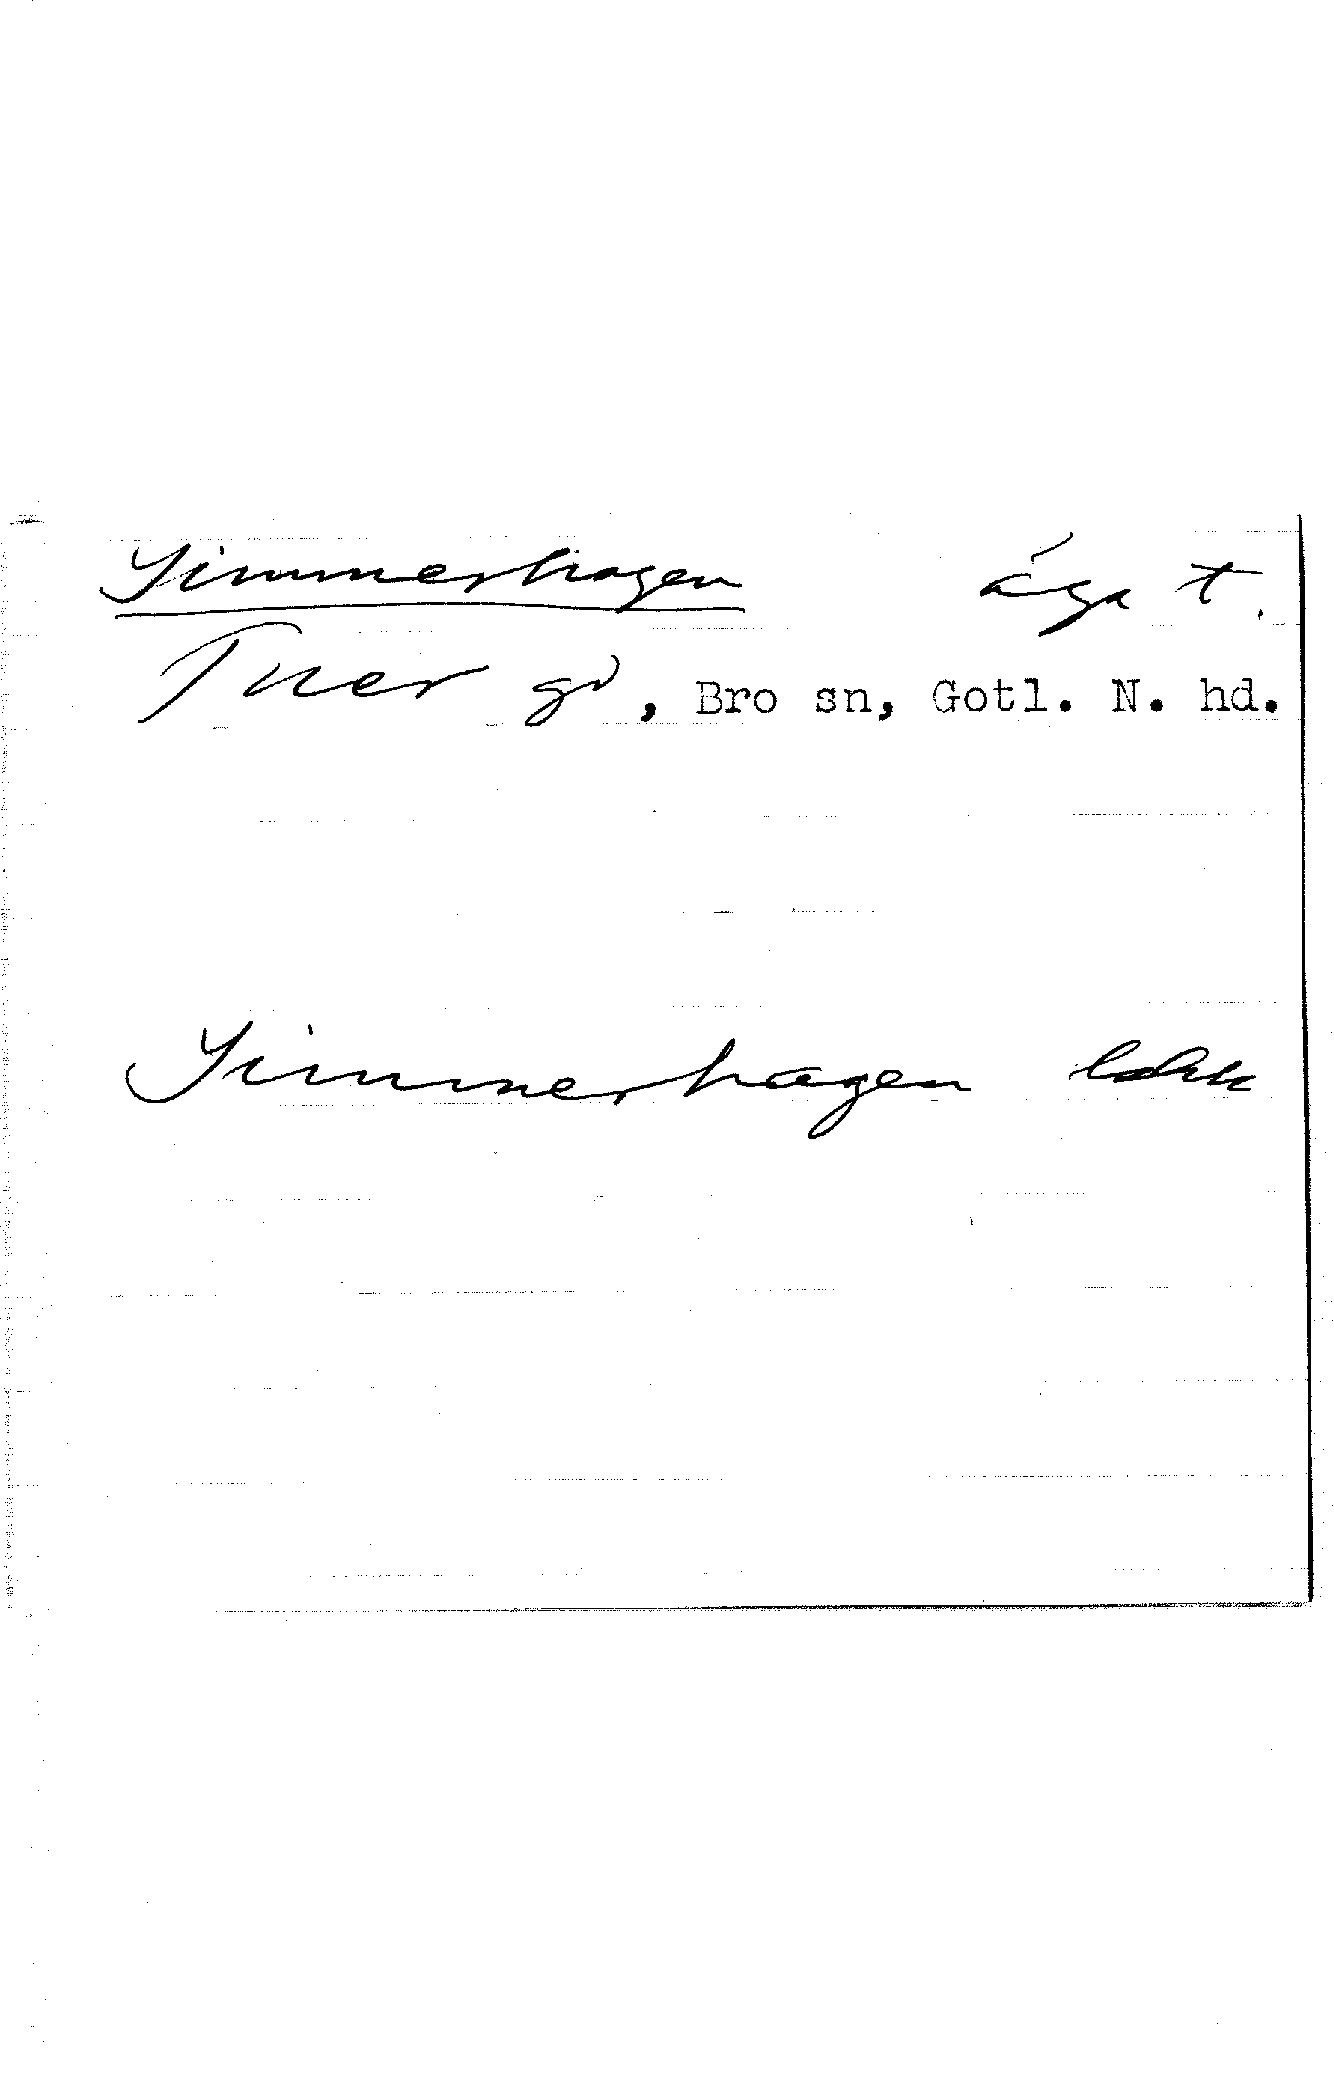 Simmerhagen äga t.
Tuer gd, Bro sn, Gotl. N. hd.
Simmerhagen